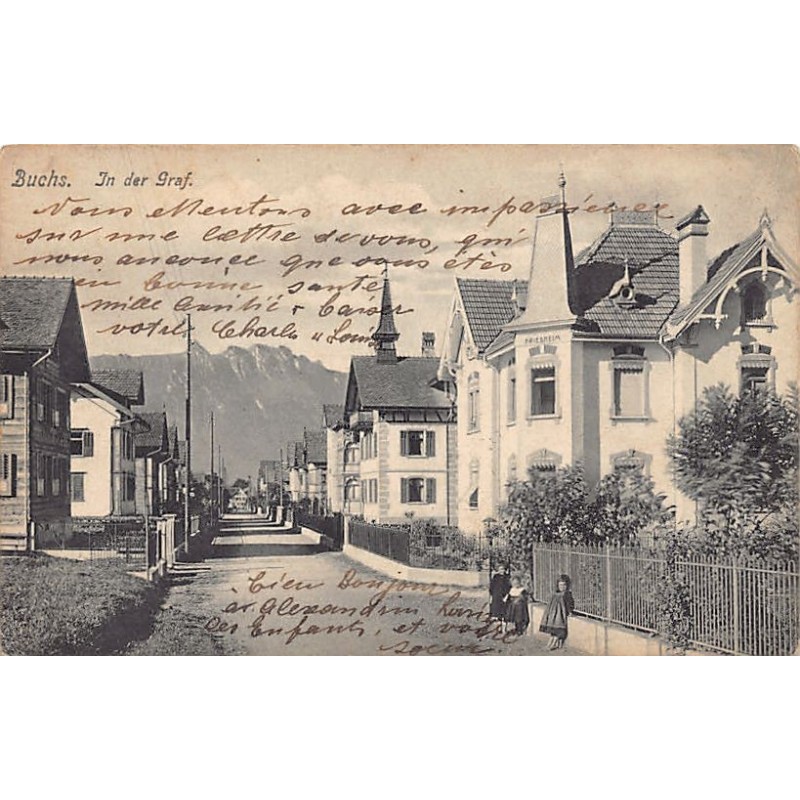 Buchs. In der Graf.
Nous Mentons avec impassience
sur une lettre de vous, qui
nous anonce que vous étès
en bonne santé
mille Amitié & Baiser
votre Charle Louis
FRIEDHEIM
bien Bonjour
a Alexandrin
des Enfants, et votre
soeur.